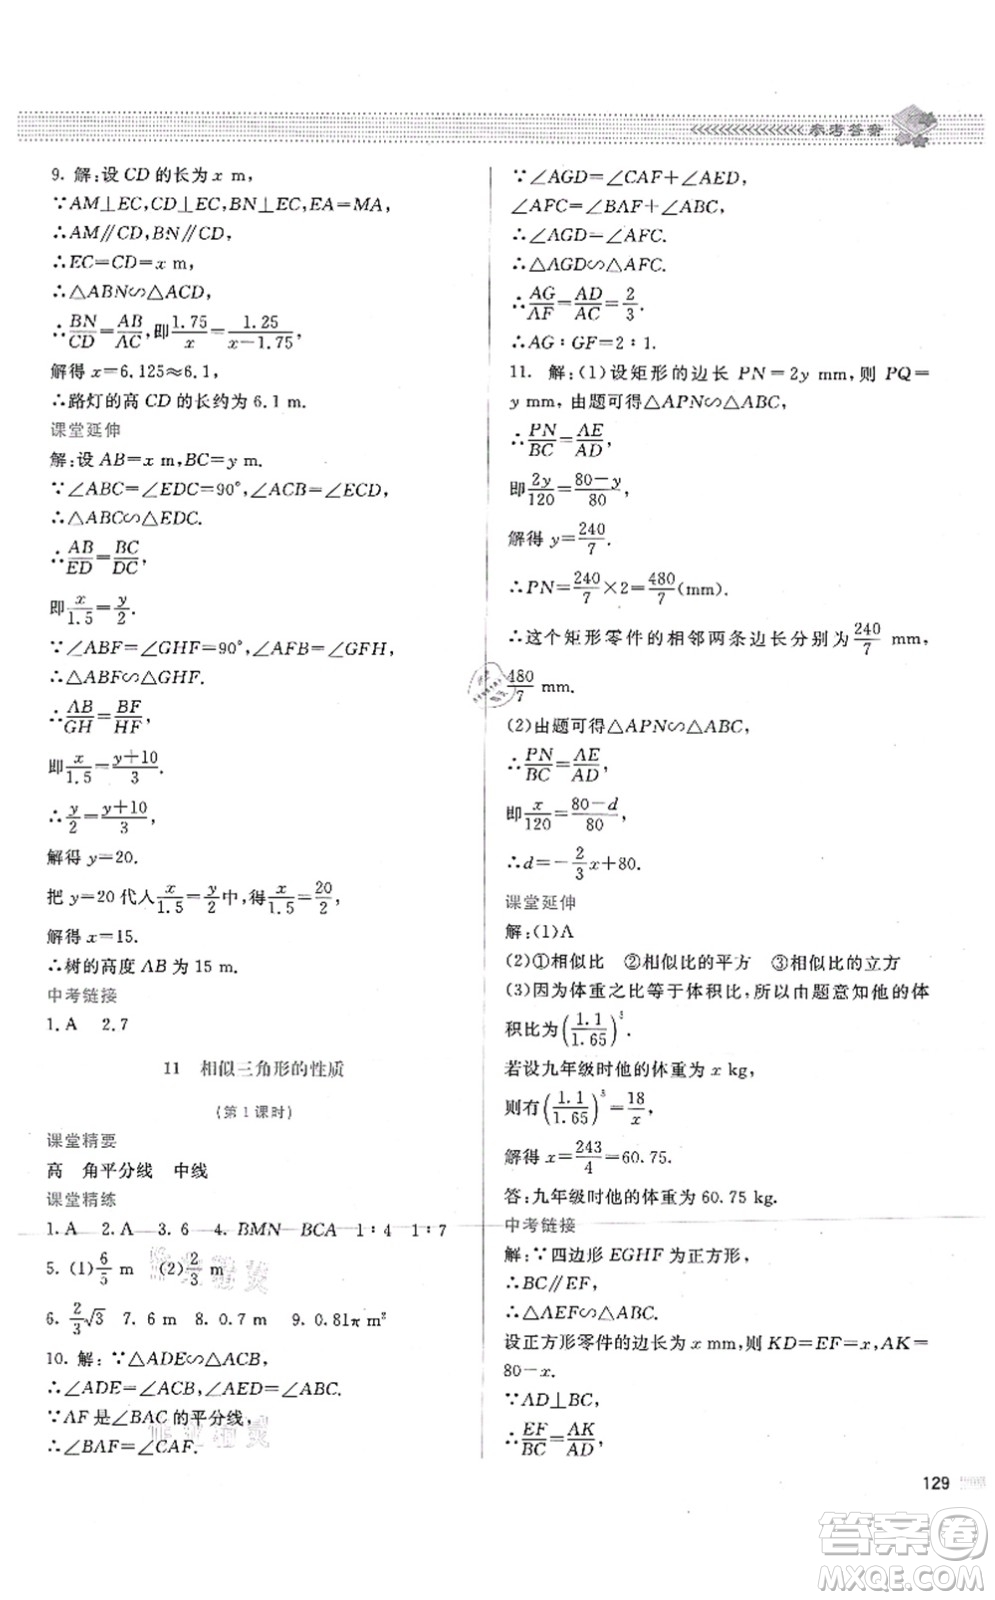 参考答案
9. 解:设 CD 的长为 x m,
∵AM⊥EC,CD⊥EC,BN⊥EC,EA=MA,
∴AM∥CD,BN∥CD,
∴EC=CD=x m,
∴△ABN∽△ACD,
∴BN/CD=AB/AC,即1.75/x=1.25/(x-1.75),
解得 x=6.125≈6.1,
∴路灯的高 CD 的长约为 6.1 m.
课堂延伸
解:设 AB=x m,BC=y m.
∵∠ABC=∠EDC=90°,∠ACB=∠ECD,
∴△ABC∽△EDC.
∴AB/ED=BC/DC,
即x/1.5=y/2.
∵∠ABF=∠GHF=90°,∠AFB=∠GFH,
∴△ABF∽△GHF.
∴AB/GH=BF/HF
即x/1.5=(y+10)/3.
∴y/2=(y+10)/3,
解得 y=20.
把 y=20 代入x/1.5=y/2中,得x/1.5=20/2,
解得 x=15.
∴树的高度 AB 为 15 m.
中考链接
1. A 2. 7
11 相似三角形的性质
(第 1 课时)
课堂精要
高 角平分线 中线
课堂精练
1. A 2. A 3. 6 4. BMN BCA 1∶4 1∶7
5. (1)6/5 m (2)2/3 m
6. 2/3√3 7. 6 m 8. 0.7 m 9. 0.81π m²
10. 解:∵△ADE∽△ACB,
∴∠ADE=∠ACB,∠AED=∠ABC.
∵AF 是∠BAC 的平分线,
∴∠BAF=∠CAF.
∵∠AGD=∠CAF+∠AED,
∠AFC=∠BAF+∠ABC,
∴∠AGD=∠AFC.
∴△AGD∽△AFC.
∴AG/AF=AD/AC=2/3.
∴AG∶GF=2∶1.
11. 解:(1)设矩形的边长 PN=2y mm,则 PQ=
y mm,由题可得△APN∽△ABC,
∴PN/BC=AE/AD,
即2y/120=(80-y)/80,
解得 y=240/7.
∴PN=240/7×2=480/7(mm).
∴这个矩形零件的相邻两条边长分别为240/7 mm,
480/7 mm.
(2)由题可得△APN∽△ABC,
∴PN/BC=AE/AD,
即x/120=(80-d)/80
∴d=-2/3x+80.
课堂延伸
解:(1)A
(2)①相似比 ②相似比的平方 ③相似比的立方
(3)因为体重之比等于体积比,所以由题意知他的体
积比为(1.1/1.65)³
若设九年级时他的体重为 x kg,
则有(1.1/1.65)³=18/x,
解得 x=243/4=60.75.
答:九年级时他的体重为 60.75 kg.
中考链接
解:∵四边形 EGHF 为正方形,
∴BC∥EF.
∴△AEF∽△ABC.
设正方形零件的边长为 x mm,则 KD=EF=x,AK=
80-x.
∵AD⊥BC,
∴EF/BC=AK/AD,
129
答案圈
MXQE.COM